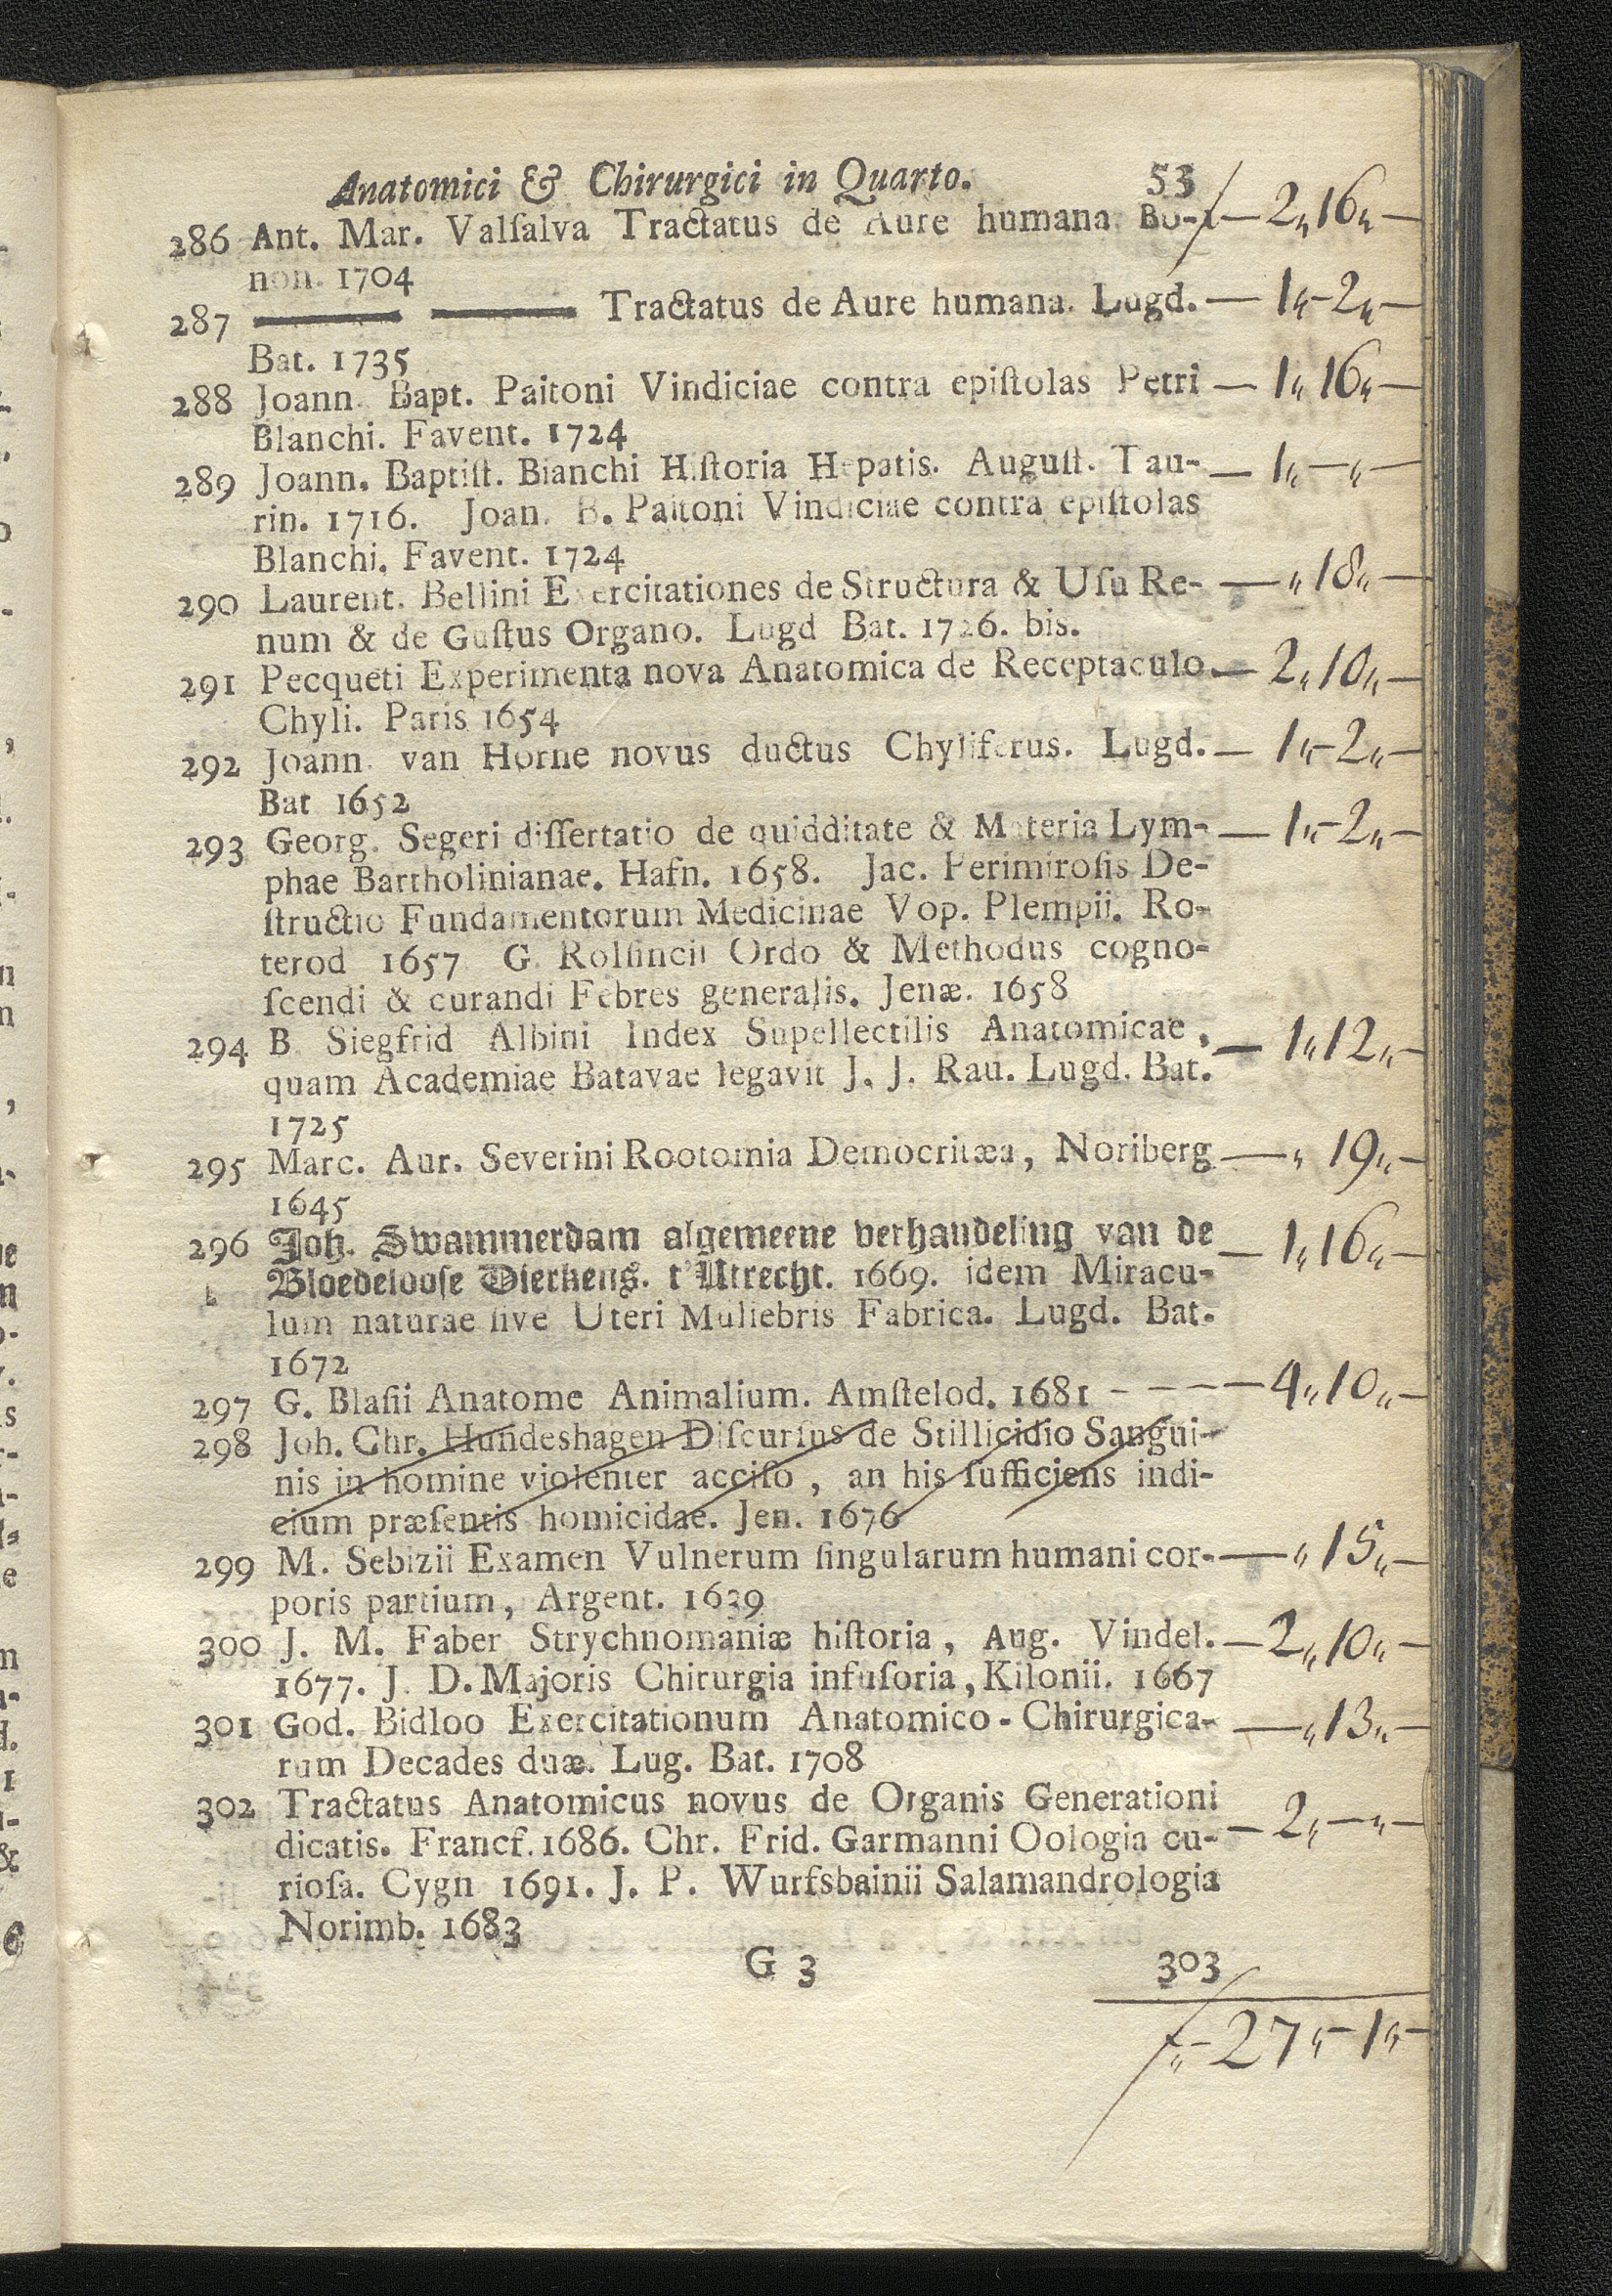 Anatomici & Chirurgici in Quarto. 53
286 Ant. Mar. Valſalva Tractatus de Aure humana. Bo- ƒ — 2„16„—
non. 1704
287 —— —— Tractatus de Aure humana. Lugd. — 1„-2„—
Bat. 1735
288 Joann. Bapt. Paitoni Vindiciae contra epiſtolas Petri — 1„16„—
Blanchi. Favent. 1724
289 Joann. Baptiſt. Bianchi Hiſtoria Hepatis. Auguſt. Tau- — 1„—„—
rin. 1716. Joan. B. Paitoni Vindiciae contra epiſtolas
Blanchi. Favent. 1724
290 Laurent. Bellini Exercitationes de Structura & Uſu Re- — „18„—
num & de Guſtus Organo. Lugd Bat. 1726. bis.
291 Pecqueti Experimenta nova Anatomica de Receptaculo — 2„10„—
Chyli. Paris 1654
292 Joann. van Horne novus ductus Chyliferus. Lugd. — 1„-2„—
Bat 1652
293 Georg. Segeri diſſertatio de quidditate & Materia Lym- — 1„-2„—
phae Bartholinianae. Hafn. 1658. Jac. Perimiroſis De-
ſtructio Fundamentorum Medicinae Vop. Plempii. Ro-
terod 1657 G. Rolfincii Ordo & Methodus cogno-
ſcendi & curandi Febres generalis. Jenæ. 1658
294 B. Siegfrid Albini Index Supellectilis Anatomicae, — 1„12„—
quam Academiae Batavae legavit J. J. Rau. Lugd. Bat.
1725
295 Marc. Aur. Severini Rootomia Democritæa, Noriberg — „19„—
1645
296 Joh. Swammerdam algemeene verhandeling van de — 1„16„—
Bloedelooſe Dierkens. t'Utrecht. 1669. idem Miracu-
lum naturae ſive Uteri Muliebris Fabrica. Lugd. Bat.
1672
297 G. Blaſii Anatome Animalium. Amſtelod. 1681 - - - — 4„10„—
298 Joh. Chr. Hundeshagen Diſcurſus de Stillicidio Sangui-
nis in homine violenter acciſo, an his ſufficiens indi-
cium præſentis homicidae. Jen. 1676
299 M. Sebizii Examen Vulnerum ſingularum humani cor- — „15„—
poris partium, Argent. 1639
300 J. M. Faber Strychnomaniæ hiſtoria, Aug. Vindel. — 2„10„—
1677. J. D. Majoris Chirurgia infuſoria, Kilonii. 1667
301 God. Bidloo Exercitationum Anatomico-Chirurgica- — „13„—
rum Decades duæ. Lug. Bat. 1708
302 Tractatus Anatomicus novus de Organis Generationi
dicatis. Francf. 1686. Chr. Frid. Garmanni Oologia cu- — 2„—„—
rioſa. Cygn 1691. J. P. Wurfsbainii Salamandrologia
Norimb. 1683
G 3 303
ƒ„-27„-1„-